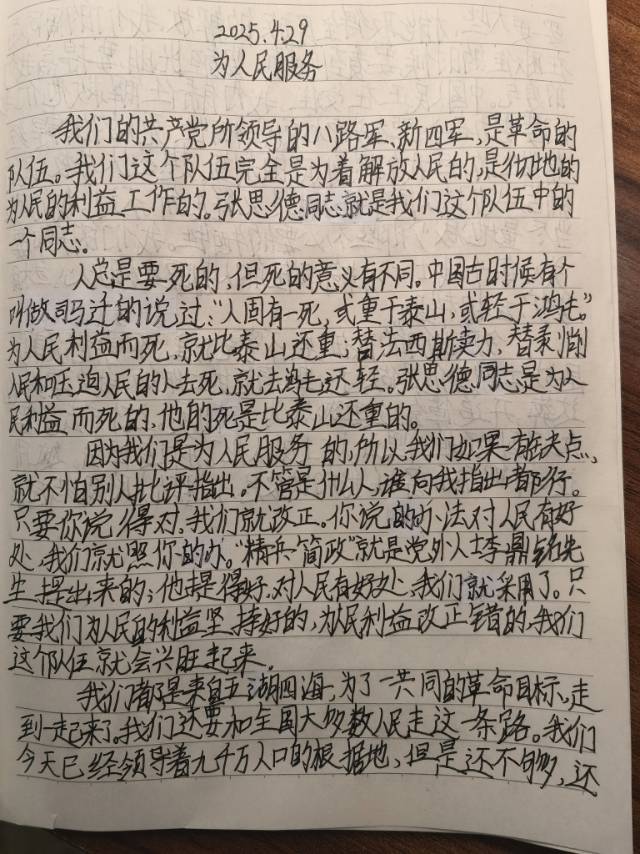 2025.4.29
为人民服务
我们的共产党所领导的八路军、新四军,是革命的
队伍。我们这个队伍完全是为着解放人民的,是彻地的
为人民的利益工作的。张思德同志就是我们这个队伍中的
一个同志。
人总是要死的,但死的意义有不同。中国古时候有个
叫做司马迁的说过:“人固有一死,或重于泰山,或轻于鸿毛。”
为人民利益而死,就比泰山还重;替法西斯卖力,替剥削
人民和压迫人民的人去死,就去鸿毛还轻。张思德同志是为人
民利益而死的,他的死是比泰山还重的。
因为我们是为人民服务的,所以,我们如果有缺点,
就不怕别人批评指出。不管是什么人,谁向我指出都行。
只要你说得对,我们就改正。你说的办法对人民有好
处,我们就照你的办。“精兵简政”就是党外人士李鼎铭先
生提出来的;他提得好,对人民有好处,我们就采用了。只
要我们为人民的利益坚持好的,为人民利益改正错的,我们
这个队伍就会兴旺起来。
我们都是来自五湖四海,为了一共同的革命目标,走
到一起来了。我们还要和全国大多数人民走这一条路。我们
今天已经领导着九千万人口的根据地,但是还不够,还